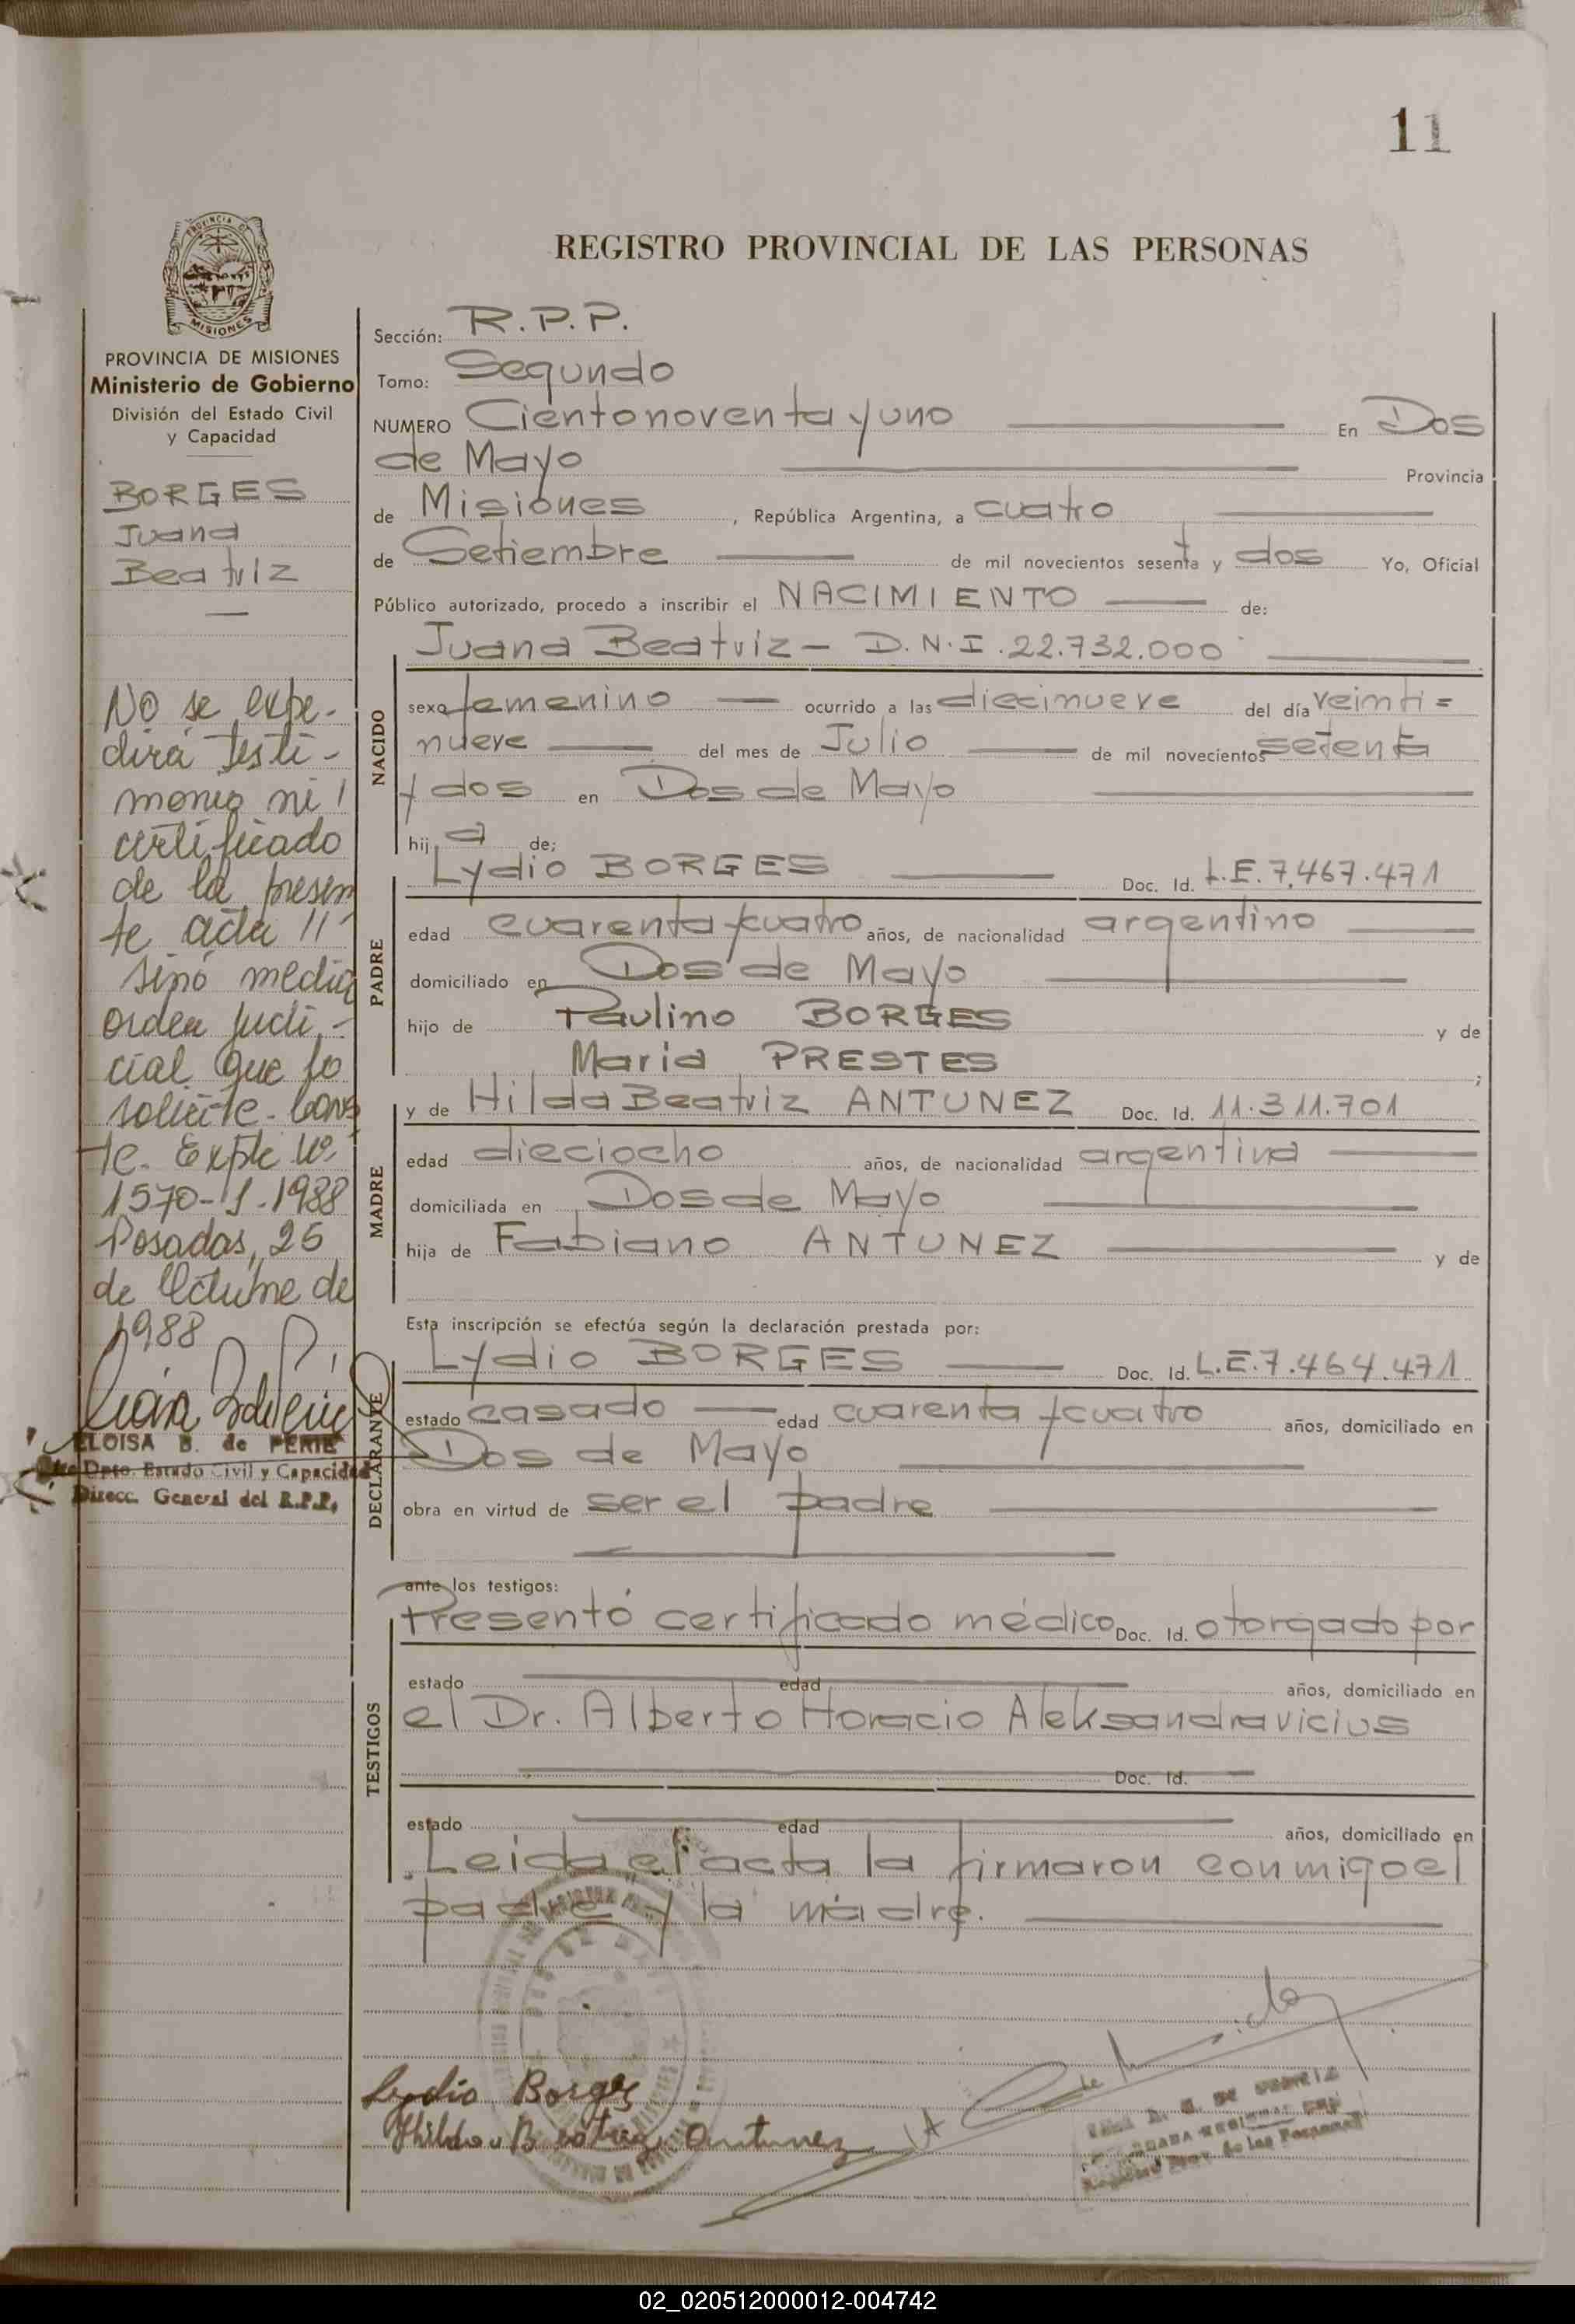 11
REGISTRO PROVINCIAL DE LAS PERSONAS
PROVINCIA DE MISIONES
Ministerio de Gobierno
División del Estado Civil
y Capacidad
BORGES
Juana
Beatriz
No se expe-
dirá testi-
monio ni
certificado
de la presen
te acta
sinó media
orden judi-
cial que lo
solicite. Cons
te. Expte Nº
1570-1-1988
Posadas, 26
de Octubre de
1988
ELOISA B. de PERIE
Dpto. Estado Civil y Capacidad
Direcc. General del R.P.P.
Sección: R.P.P.
Tomo: Segundo
NUMERO Ciento noventa y uno En Dos
de Mayo Provincia
de Misiones, República Argentina, a cuatro
de Setiembre de mil novecientos sesenta y dos Yo, Oficial
Público autorizado, procedo a inscribir el NACIMIENTO de:
Juana Beatriz - D.N.I. 22.732.000
NACIDO
sexo femenino ocurrido a las diecinueve del día veinti=
nueve del mes de Julio de mil novecientos setenta
y dos en Dos de Mayo
hija de;
PADRE
Lydio BORGES Doc. Id. L.E. 7.467.471
edad cuarenta y cuatro años, de nacionalidad argentino
domiciliado en Dos de Mayo
hijo de Paulino BORGES y de
Maria PRESTES ;
MADRE
y de Hilda Beatriz ANTUNEZ Doc. Id. 11.311.701
edad dieciocho años, de nacionalidad argentina
domiciliada en Dos de Mayo
hija de Fabiano ANTUNEZ y de
Esta inscripción se efectúa según la declaración prestada por:
DECLARANTE
Lydio BORGES Doc. Id. L.E. 7.464.471
estado casado edad cuarenta y cuatro años, domiciliado en
Dos de Mayo
obra en virtud de ser el padre
ante los testigos:
TESTIGOS
Presentó certificado médico Doc. Id. otorgado por
estado edad años, domiciliado en
el Dr. Alberto Horacio Aleksandravicius
Doc. Id.
estado edad años, domiciliado en
Leida el acta la firmaron conmigo el
padre y la madre.
Lydio Borges
Hilda Beatriz Antunez
02_020512000012-004742